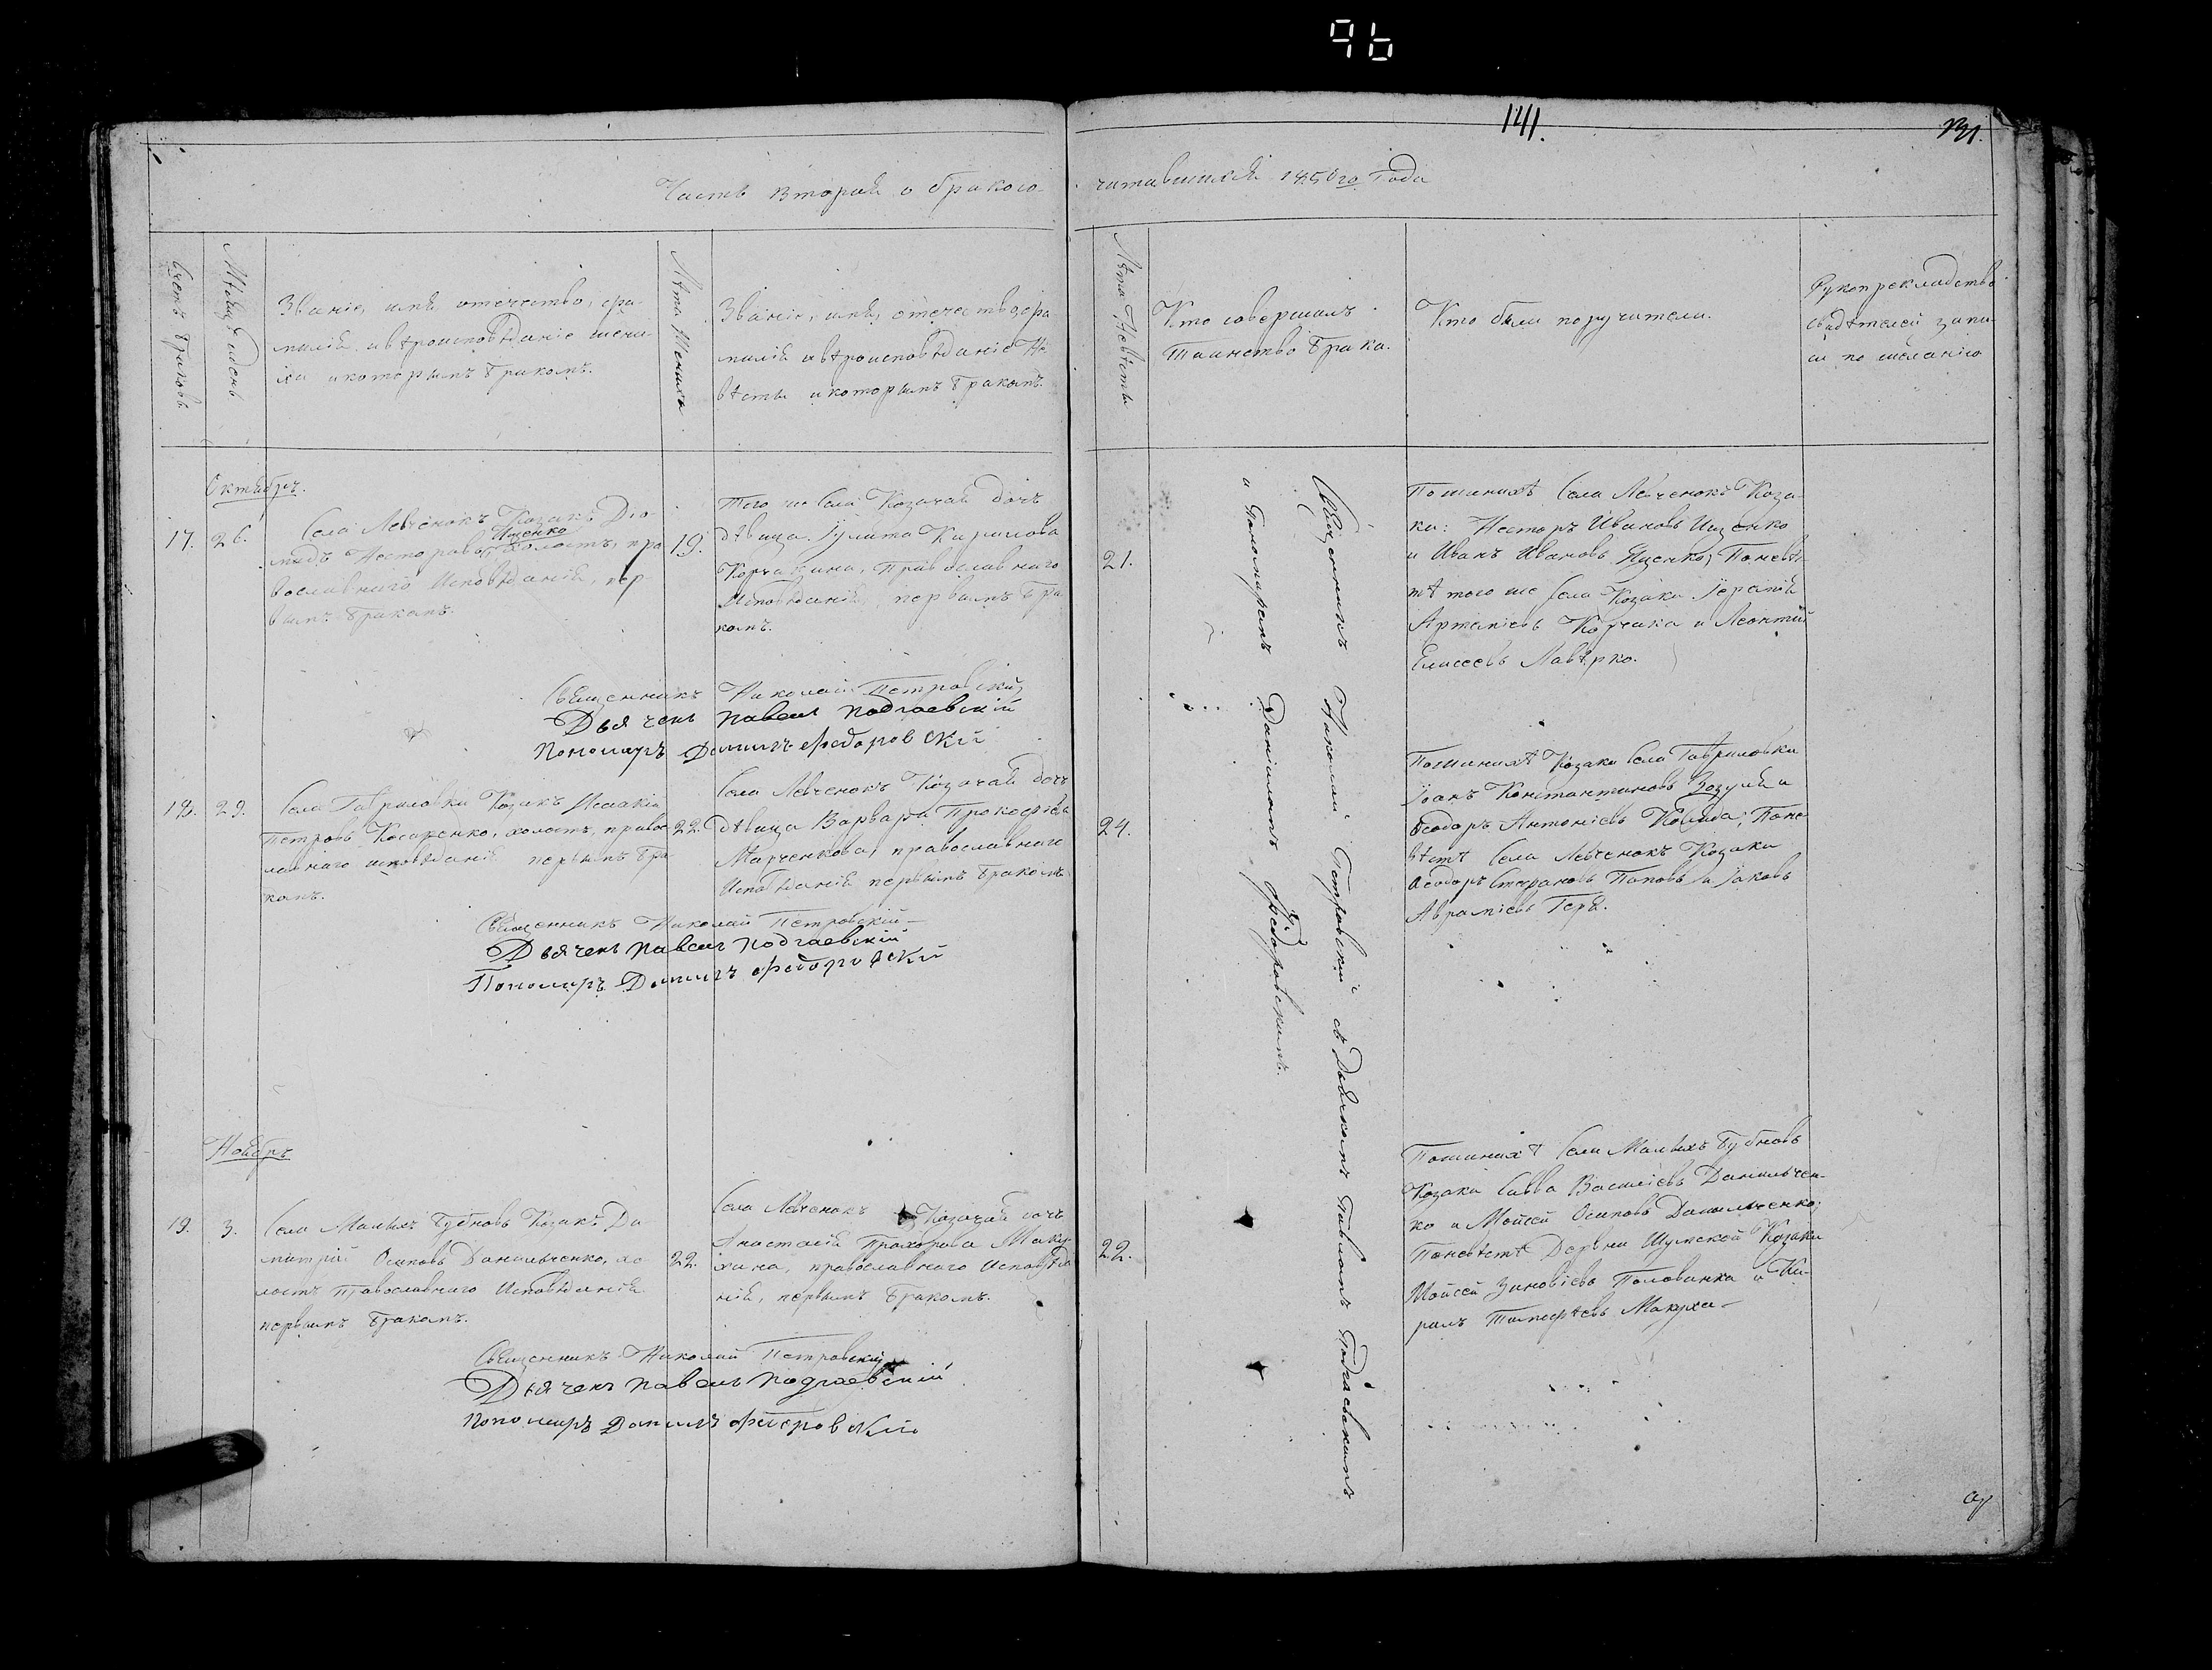 96
141.
131.
Часть вторая о бракосо-
читавшихся 1850го Года
Счетъ браковъ
Мѣсяцъ и день
Званіе, имя, отечество, фа-
милія и вѣроисповѣданіе жени-
ха и которымъ бракомъ.
Лѣта Жениха
Званіе, имя, отечество, фа
милія и вѣроисповѣданіе Не
вѣсты и которымъ бракомъ.
Лѣта Невѣсты
Кто совершалъ
Таинство брака.
Кто были поручители.
Рукоприкладство
свидѣтелей запи-
си по желанію
Октябрь.
17.
26.
Села Левченокъ Козакъ Дио-
Ищенко
мидъ Несторовъ, холостъ, пра
вославнаго Исповѣданія, пер-
вымъ бракомъ.
19.
Того же Села Козачая дочь
дѣвица Іулита Кирилова
Корчакина, Православнаго
Исповѣданія, первымъ бра
комъ.
21.
Священникъ Николай Петровскій съ Дьячкомъ Павломъ Подгаевскимъ
и Пономаремъ Даніиломъ Федоровскимъ.
По женихѣ Села Левченокъ Коза-
ки: Несторъ Ивановъ Ищенко
и Иванъ Ивановъ Ященко, По невѣ-
тѣ того же Села Козаки Іеремія
Артемієвъ Корчака и Леонтій
Елисеевъ Лавѣрко.
Священникъ Николай Петровскій
Дьячекъ Павелъ Подгаевскій
Пономарь Данилъ Федоровскій
18.
29.
Села Гавриловки Козакъ Исаакій
Петровъ Косаренко, холостъ, правос
лавнаго исповѣданія первымъ бра
комъ.
22.
Села Левченокъ Козачая дочь
дѣвица Варвара Прокофіева
Марченкова, православнаго
Исповѣданія первымъ бракомъ
24.
По женихѣ Козаки Села Гавриловки
Іоанъ Константиновъ Зозуля и
Ѳеодоръ Антоніевъ; По не
вѣстѣ Села Левченокъ Козаки
Ѳеодоръ Стефановъ Поповъ и Іаковъ
Авраміевъ Геря.
Священникъ Николай Петровскій
Дьячекъ Павелъ Подгаевскій
Пономарь Данилъ Федоровскій
Ноябрь
19.
3.
Села Малыхъ Бубновъ Козакъ Ди
митрій Осиповъ Данильченко, хо
лостъ Православнаго Исповѣданія
первымъ бракомъ.
22.
Села Левченокъ Козачая дочь
Анастасія Прохорова Маку-
хина, православнаго Исповѣда
нія, первымъ бракомъ.
22.
По женихѣ Села Малыхъ Бубновъ
Козаки Савва Василіевъ Данильчен-
ко и Мойсей Осиповъ Данильченко;
По невѣстѣ Дервни Шумской Козаки
Мойсей Зиновіевъ Половинка и Ки-
рилъ Тимофѣевъ Макуха
Священникъ Николай Петровскій
Дьячекъ Павелъ Подгаевскій
Пономарь Данилъ Федоровскій